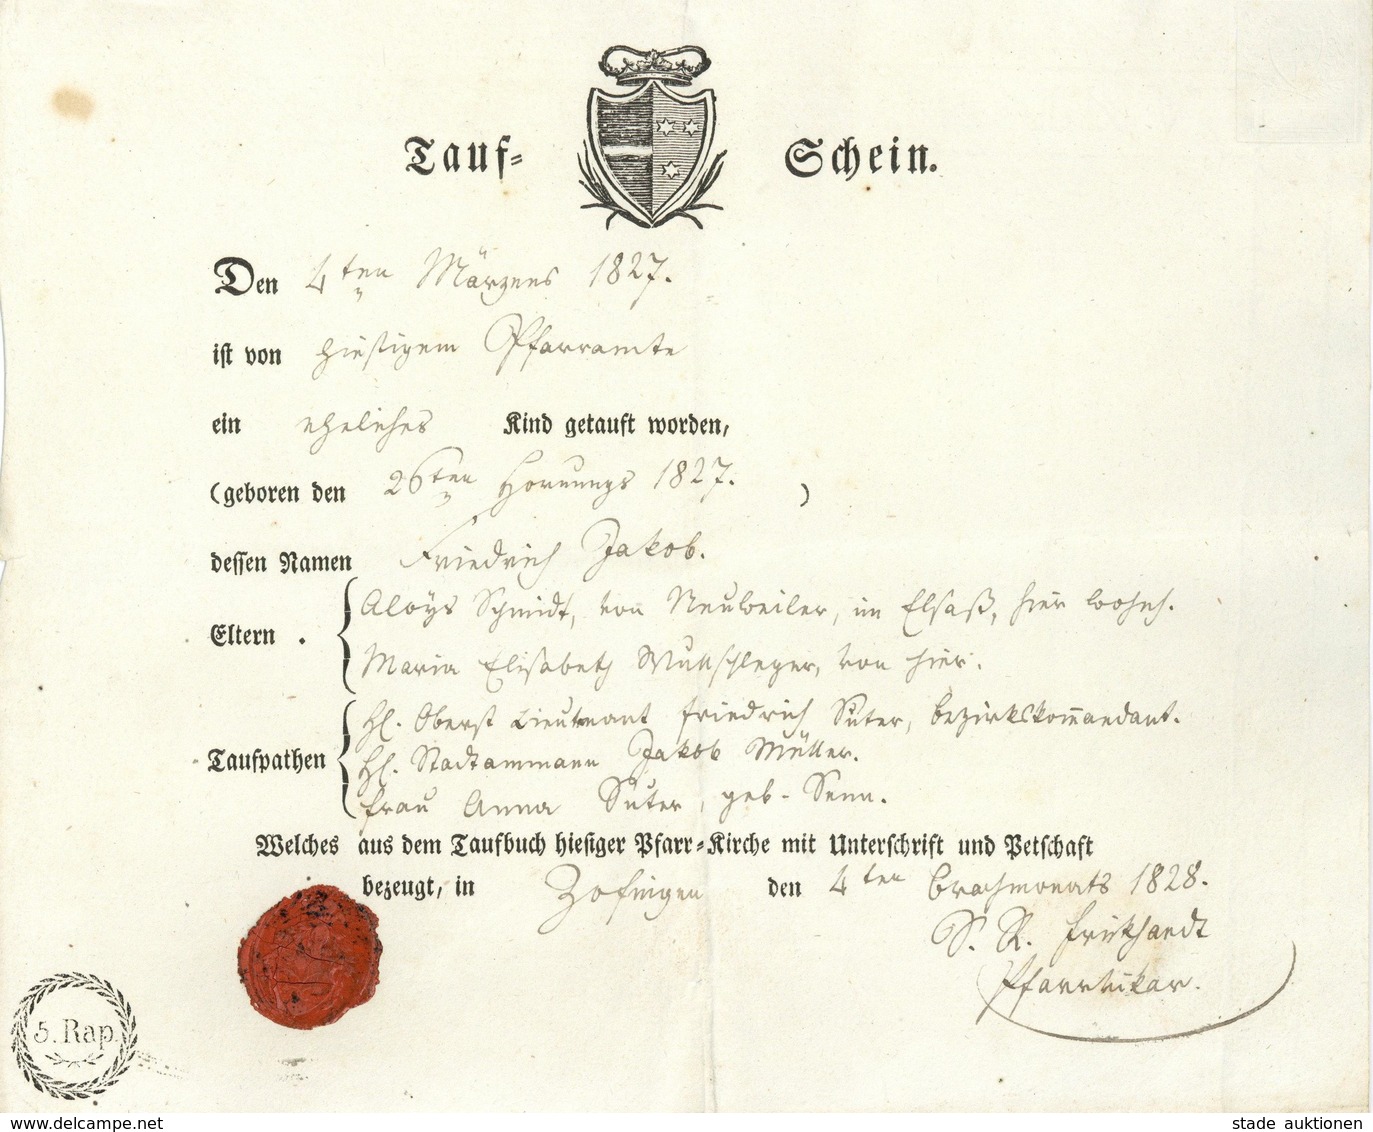 Tauf= Schein.
Den 4ten Märzens 1827.
ist von hiesigem Pfarramte
ein eheliches Kind getauft worden,
(geboren den 26ten Hornungs 1827. )
dessen Namen Friedrich Jakob.
Aloÿs Schmidt, von Neuweiler, im Elsaß, hier wohnh.
Eltern .
Maria Elisabeth Mutschleger, von hier.
Hl. Oberst Lieutenant Friedrich Suter, Bezirkskom̄andant.
Taufpathen Hl. Stadtammann Jakob Müller.
Frau Anna Suter, geb. Senn.
Welches aus dem Taufbuch hiesiger Pfarr=Kirche mit Unterschrift und Petschaft
bezeugt, in Zofingen den 4ten Brachmonats 1828.
S. R. Frikhardt
Pfarrvikar.
5. Rap.
www.delcampe.net
stade auktionen